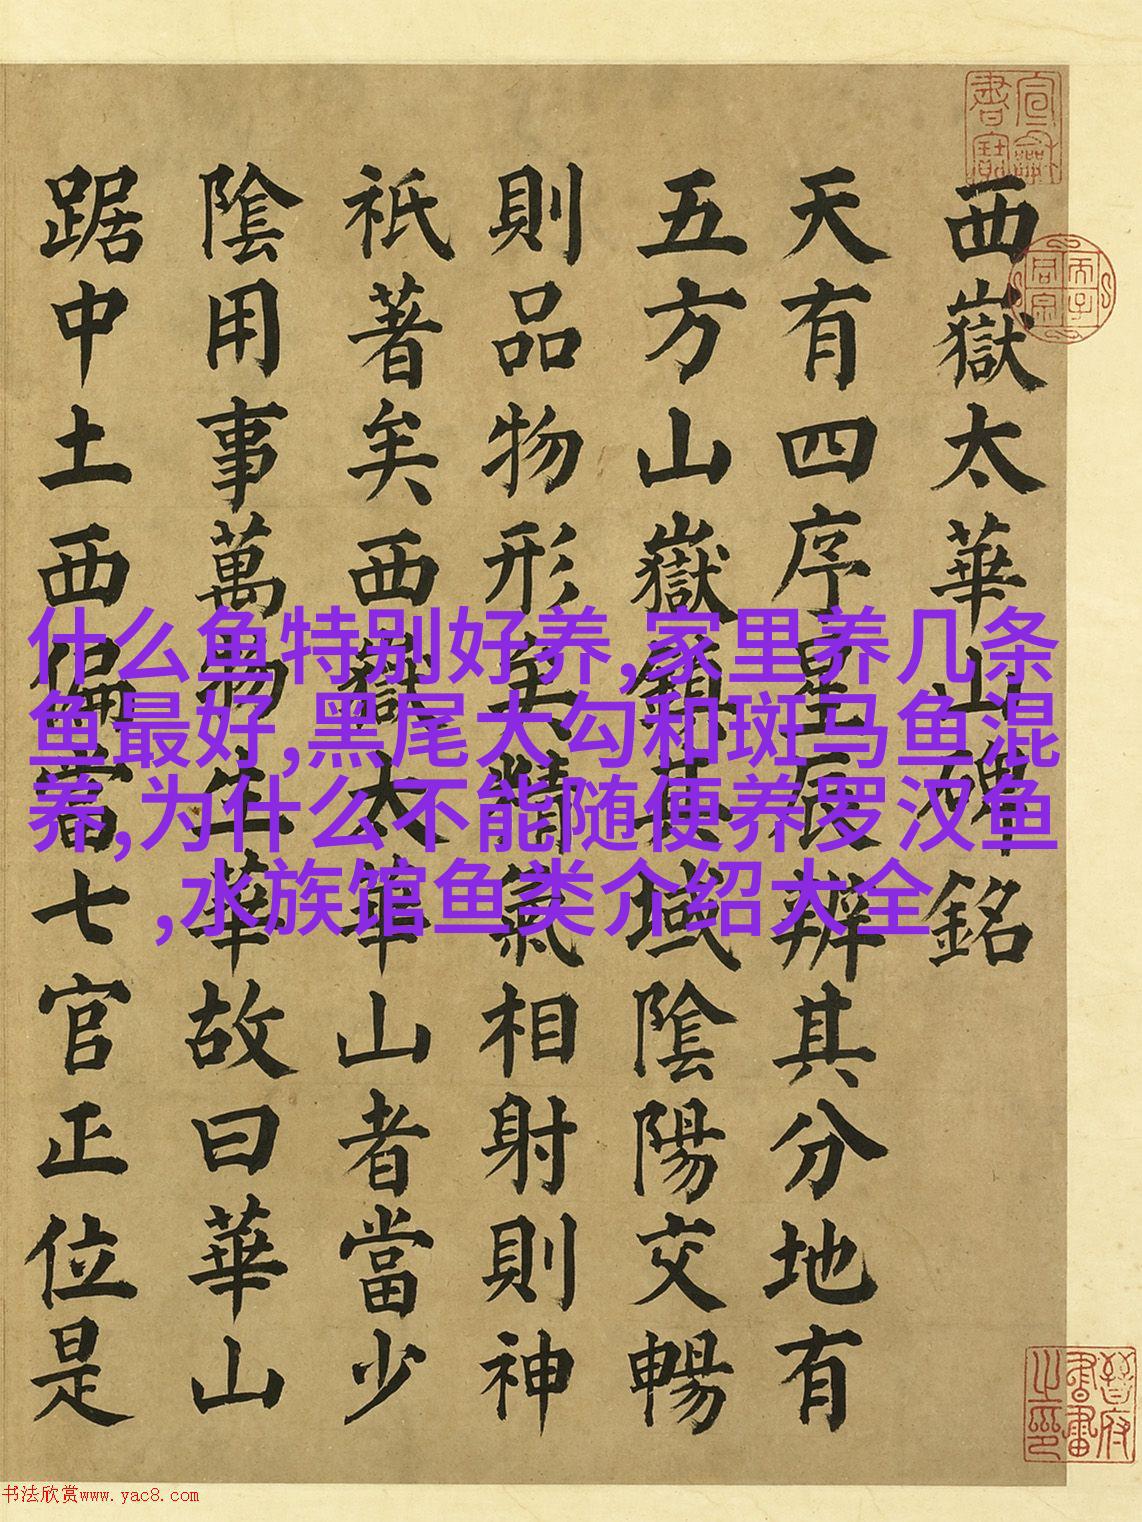 西嶽太華山碑銘
天有四序星辰辨其分地有
五方山嶽鎮其域陰陽交暢
則品物形至精氣相射則神
祇著矣西嶽太華山者當少
陰用事萬物生華故曰華山
踞中土西偏當七官正位是
什么鱼特别好养,家里养几条
鱼最好,黑尾大勾和斑马鱼混
养,为什么不能随便养罗汉鱼
,水族馆鱼类介绍大全
書法欣赏www.yac8.com